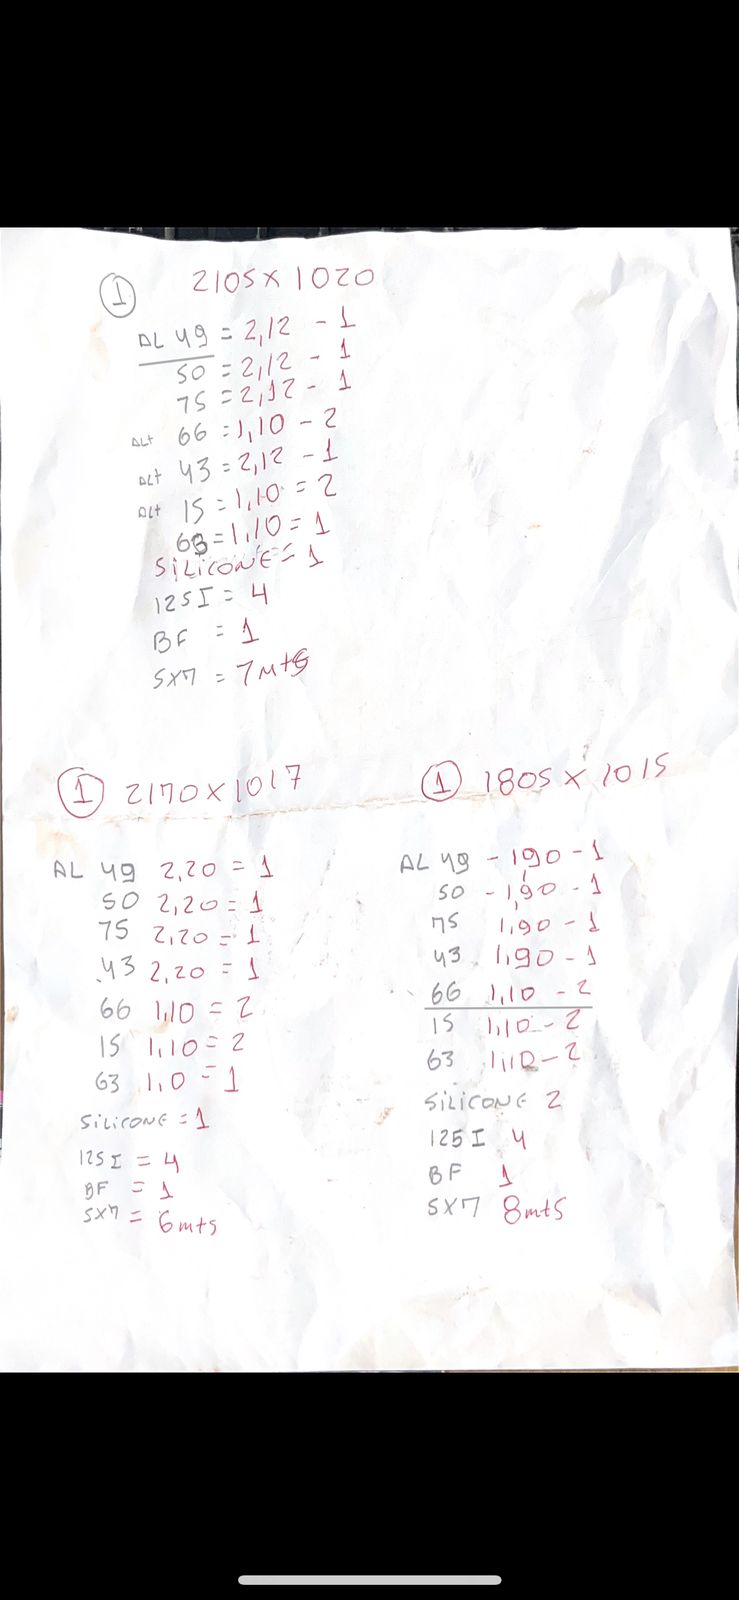 1 2105 X 1020
AL 49 = 2,12 - 1
50 = 2,12 - 1
75 = 2,12 - 1
ALt 66 = 1,10 - 2
ALt 43 = 2,12 - 1
ALt 15 = 1,10 = 2
63 = 1,10 = 1
SiLiCONE = 1
125 I = 4
BF = 1
5X7 = 7 mts
1 2170 X 1017
AL 49 2,20 = 1
50 2,20 = 1
75 2,20 = 1
43 2,20 = 1
66 1,10 = 2
15 1,10 = 2
63 1,0 = 1
SiLiCONE = 1
125 I = 4
BF = 1
5X7 = 6 mts
1 1805 X 1015
AL 49 - 1,90 - 1
50 - 1,90 - 1
75 1,90 - 1
43 1,90 - 1
66 1,10 - 2
15 1,10 - 2
63 1,10 - 2
SiLiCONE 2
125 I 4
BF 1
5X7 8 mts